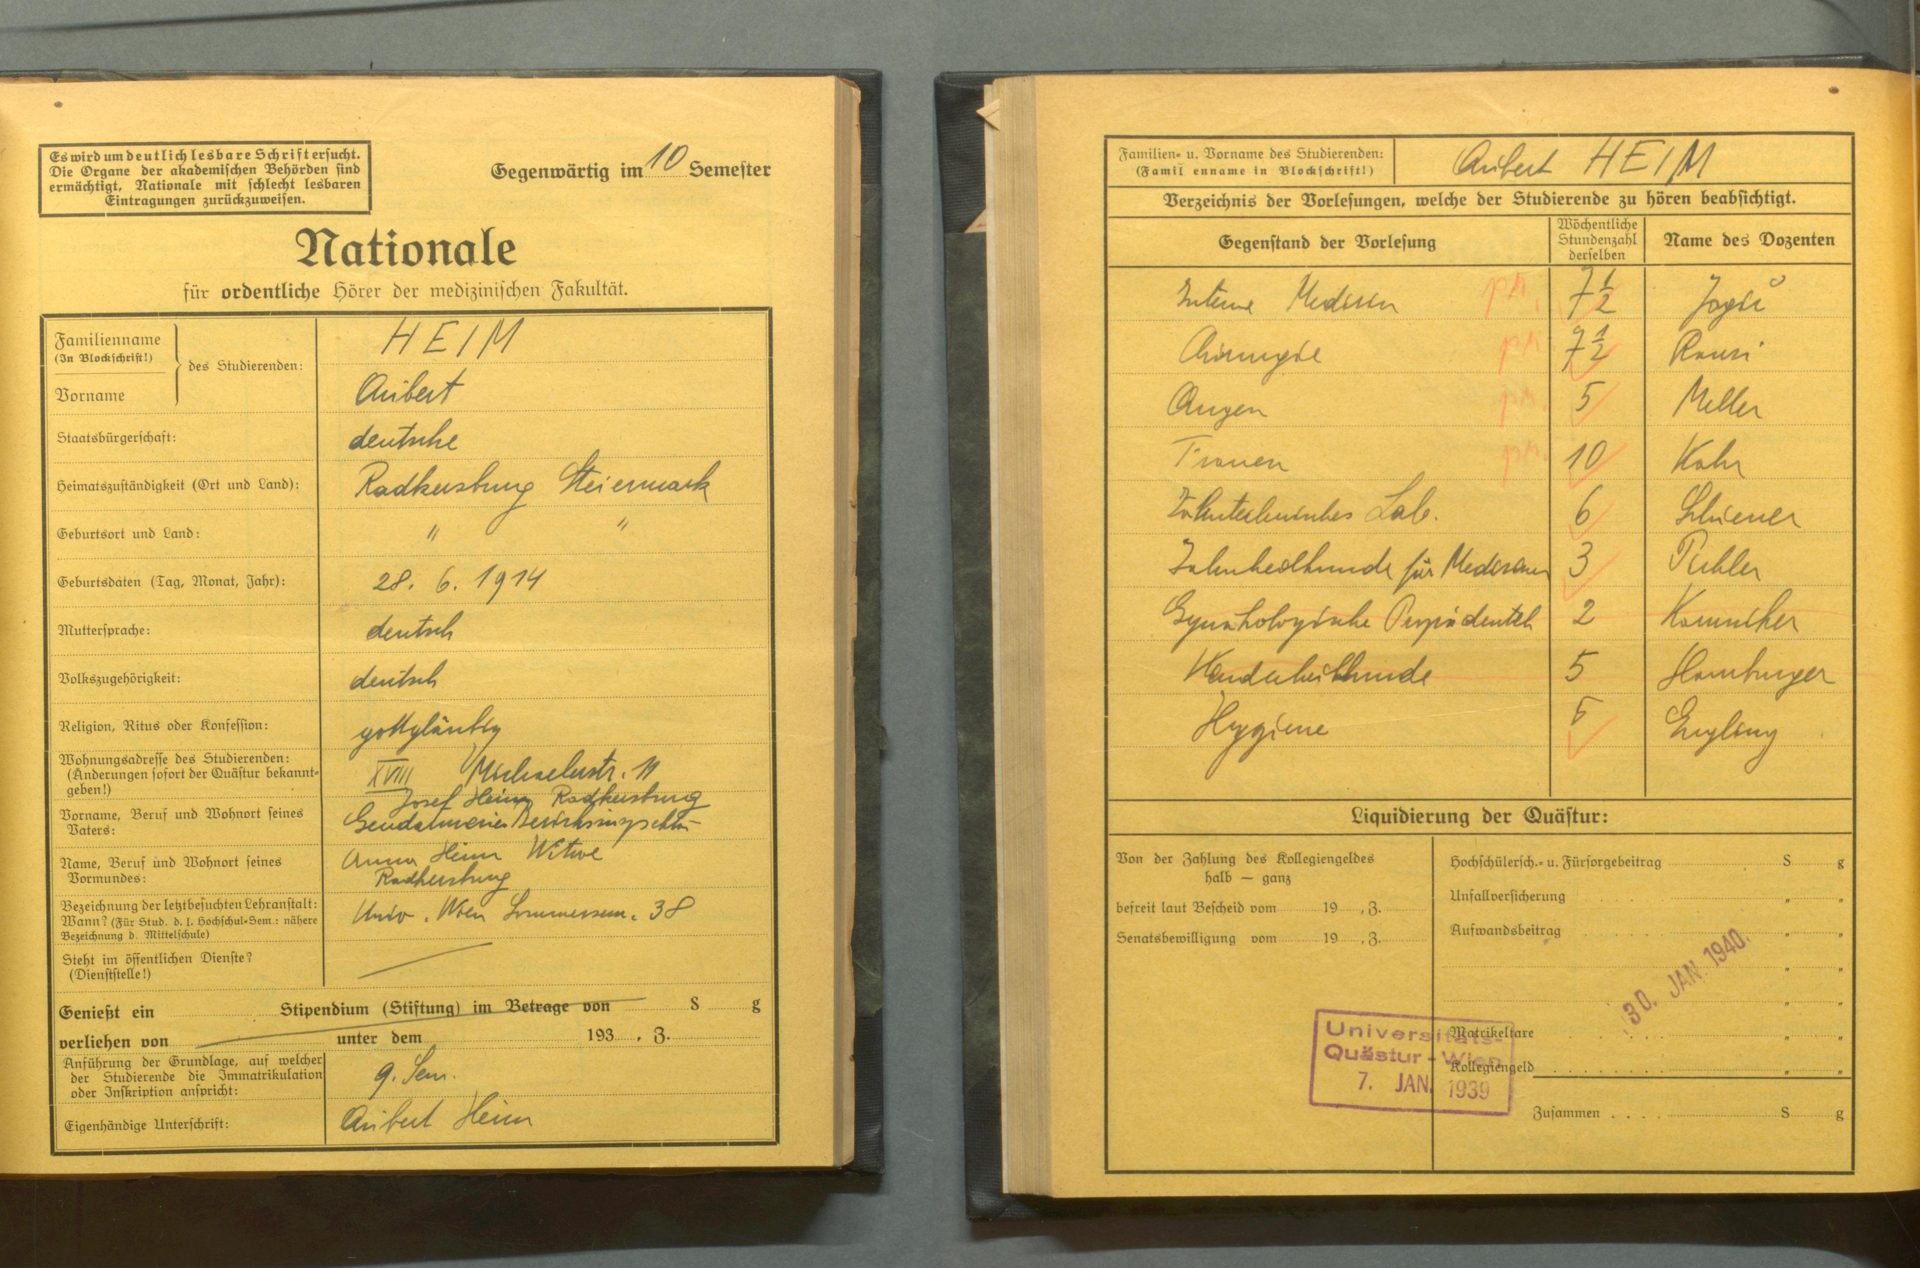 Es wird um deutlich lesbare Schrift ersucht.
Die Organe der akademischen Behörden sind
ermächtigt, Nationale mit schlecht lesbaren
Eintragungen zurückzuweisen.
Gegenwärtig im 10 Semester
Nationale
für ordentliche Hörer der medizinischen Fakultät.
Familienname
(In Blockschrift!)
Vorname
des Studierenden:
HEIM
Aribert
Staatsbürgerschaft: deutsche
Heimatszuständigkeit (Ort und Land): Radkersburg Steiermark
Geburtsort und Land: " "
Geburtsdaten (Tag, Monat, Jahr): 28. 6. 1914
Muttersprache: deutsch
Volkszugehörigkeit: deutsch
Religion, Ritus oder Konfession: gottgläubig
Wohnungsadresse des Studierenden:
(Änderungen sofort der Quästur bekannt-
geben!)
XVIII Michaelerstr. 11
Vorname, Beruf und Wohnort seines
Vaters:
Josef Heim Radkersburg
Gendarmerie Bezirksinspektor
Name, Beruf und Wohnort seines
Vormundes:
Anna Heim Witwe
Radkersburg
Bezeichnung der letztbesuchten Lehranstalt:
Wann? (Für Stud. d. I. Hochschul-Sem.: nähere
Bezeichnung d. Mittelschule)
Univ. Wien Sommersem. 38
Steht im öffentlichen Dienste?
(Dienststelle!)
Genießt ein Stipendium (Stiftung) im Betrage von S g
verliehen von unter dem 193 , Z.
Anführung der Grundlage, auf welcher
der Studierende die Immatrikulation
oder Inskription anspricht:
9. Sem.
Eigenhändige Unterschrift: Aribert Heim
Familien- u. Vorname des Studierenden:
(Famil enname in Blockschrift!)
Aribert HEIM
Verzeichnis der Vorlesungen, welche der Studierende zu hören beabsichtigt.
Gegenstand der Vorlesung
Wöchentliche
Stundenzahl
derselben
Name des Dozenten
Interne Medizin pr. 7 1/2 Jagić
Chirurgie pr. 7 1/2 Ranzi
Augen pr. 5 Meller
Frauen pr. 10 Kahr
Zahntechnisches Lab. 6
Zahnheilkunde für Mediziner 3 Pichler
Gynäkologische Propädeutik 2
Kinderheilkunde 5 Hamburger
Hygiene 5
Liquidierung der Quästur:
Von der Zahlung des Kollegiengeldes
halb — ganz
befreit laut Bescheid vom 19 , Z.
Senatsbewilligung vom 19 , Z.
Hochschülersch.- u. Fürsorgebeitrag S g
Unfallversicherung " "
Aufwandsbeitrag " "
" "
" "
30. JAN. 1940.
Matrikeltaxe " "
Kollegiengeld " "
Zusammen S g
Universitäts-
Quästur - Wien
7. JAN. 1939